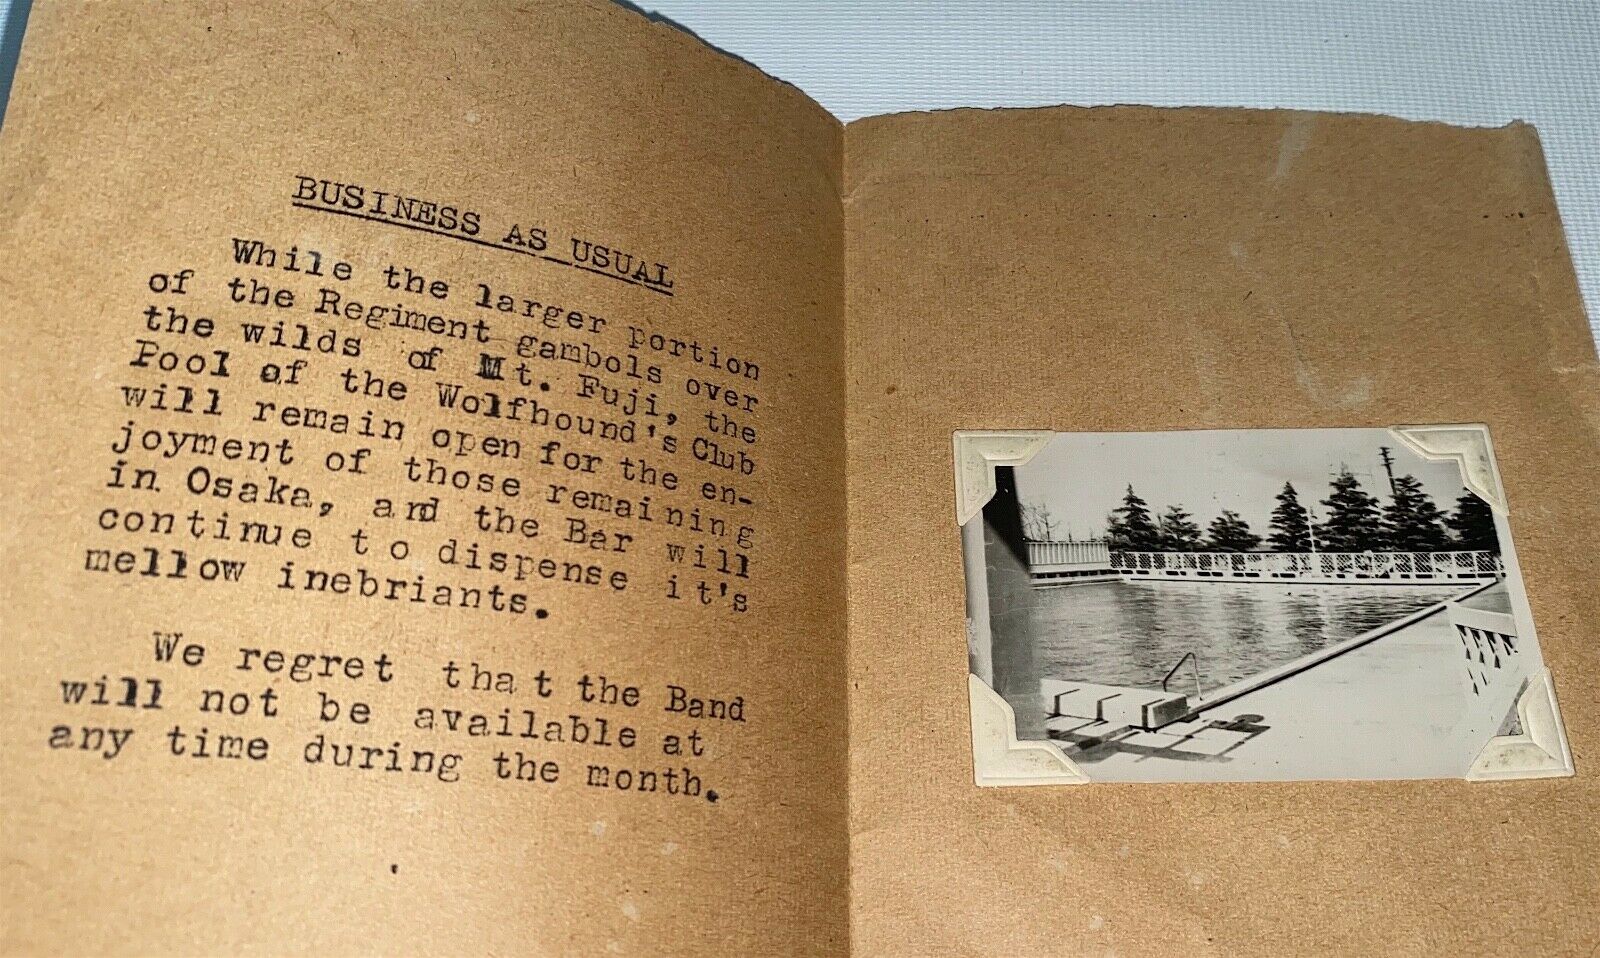 BUSINESS AS USUAL
While the larger portion
of the Regiment gambols over
the wilds of Mt. Fuji, the
Pool of the Wolfhound's Club
will remain open for the en-
joyment of those remaining
in Osaka, and the Bar will
continue to dispense it's
mellow inebriants.
We regret that the Band
will not be available at
any time during the month.